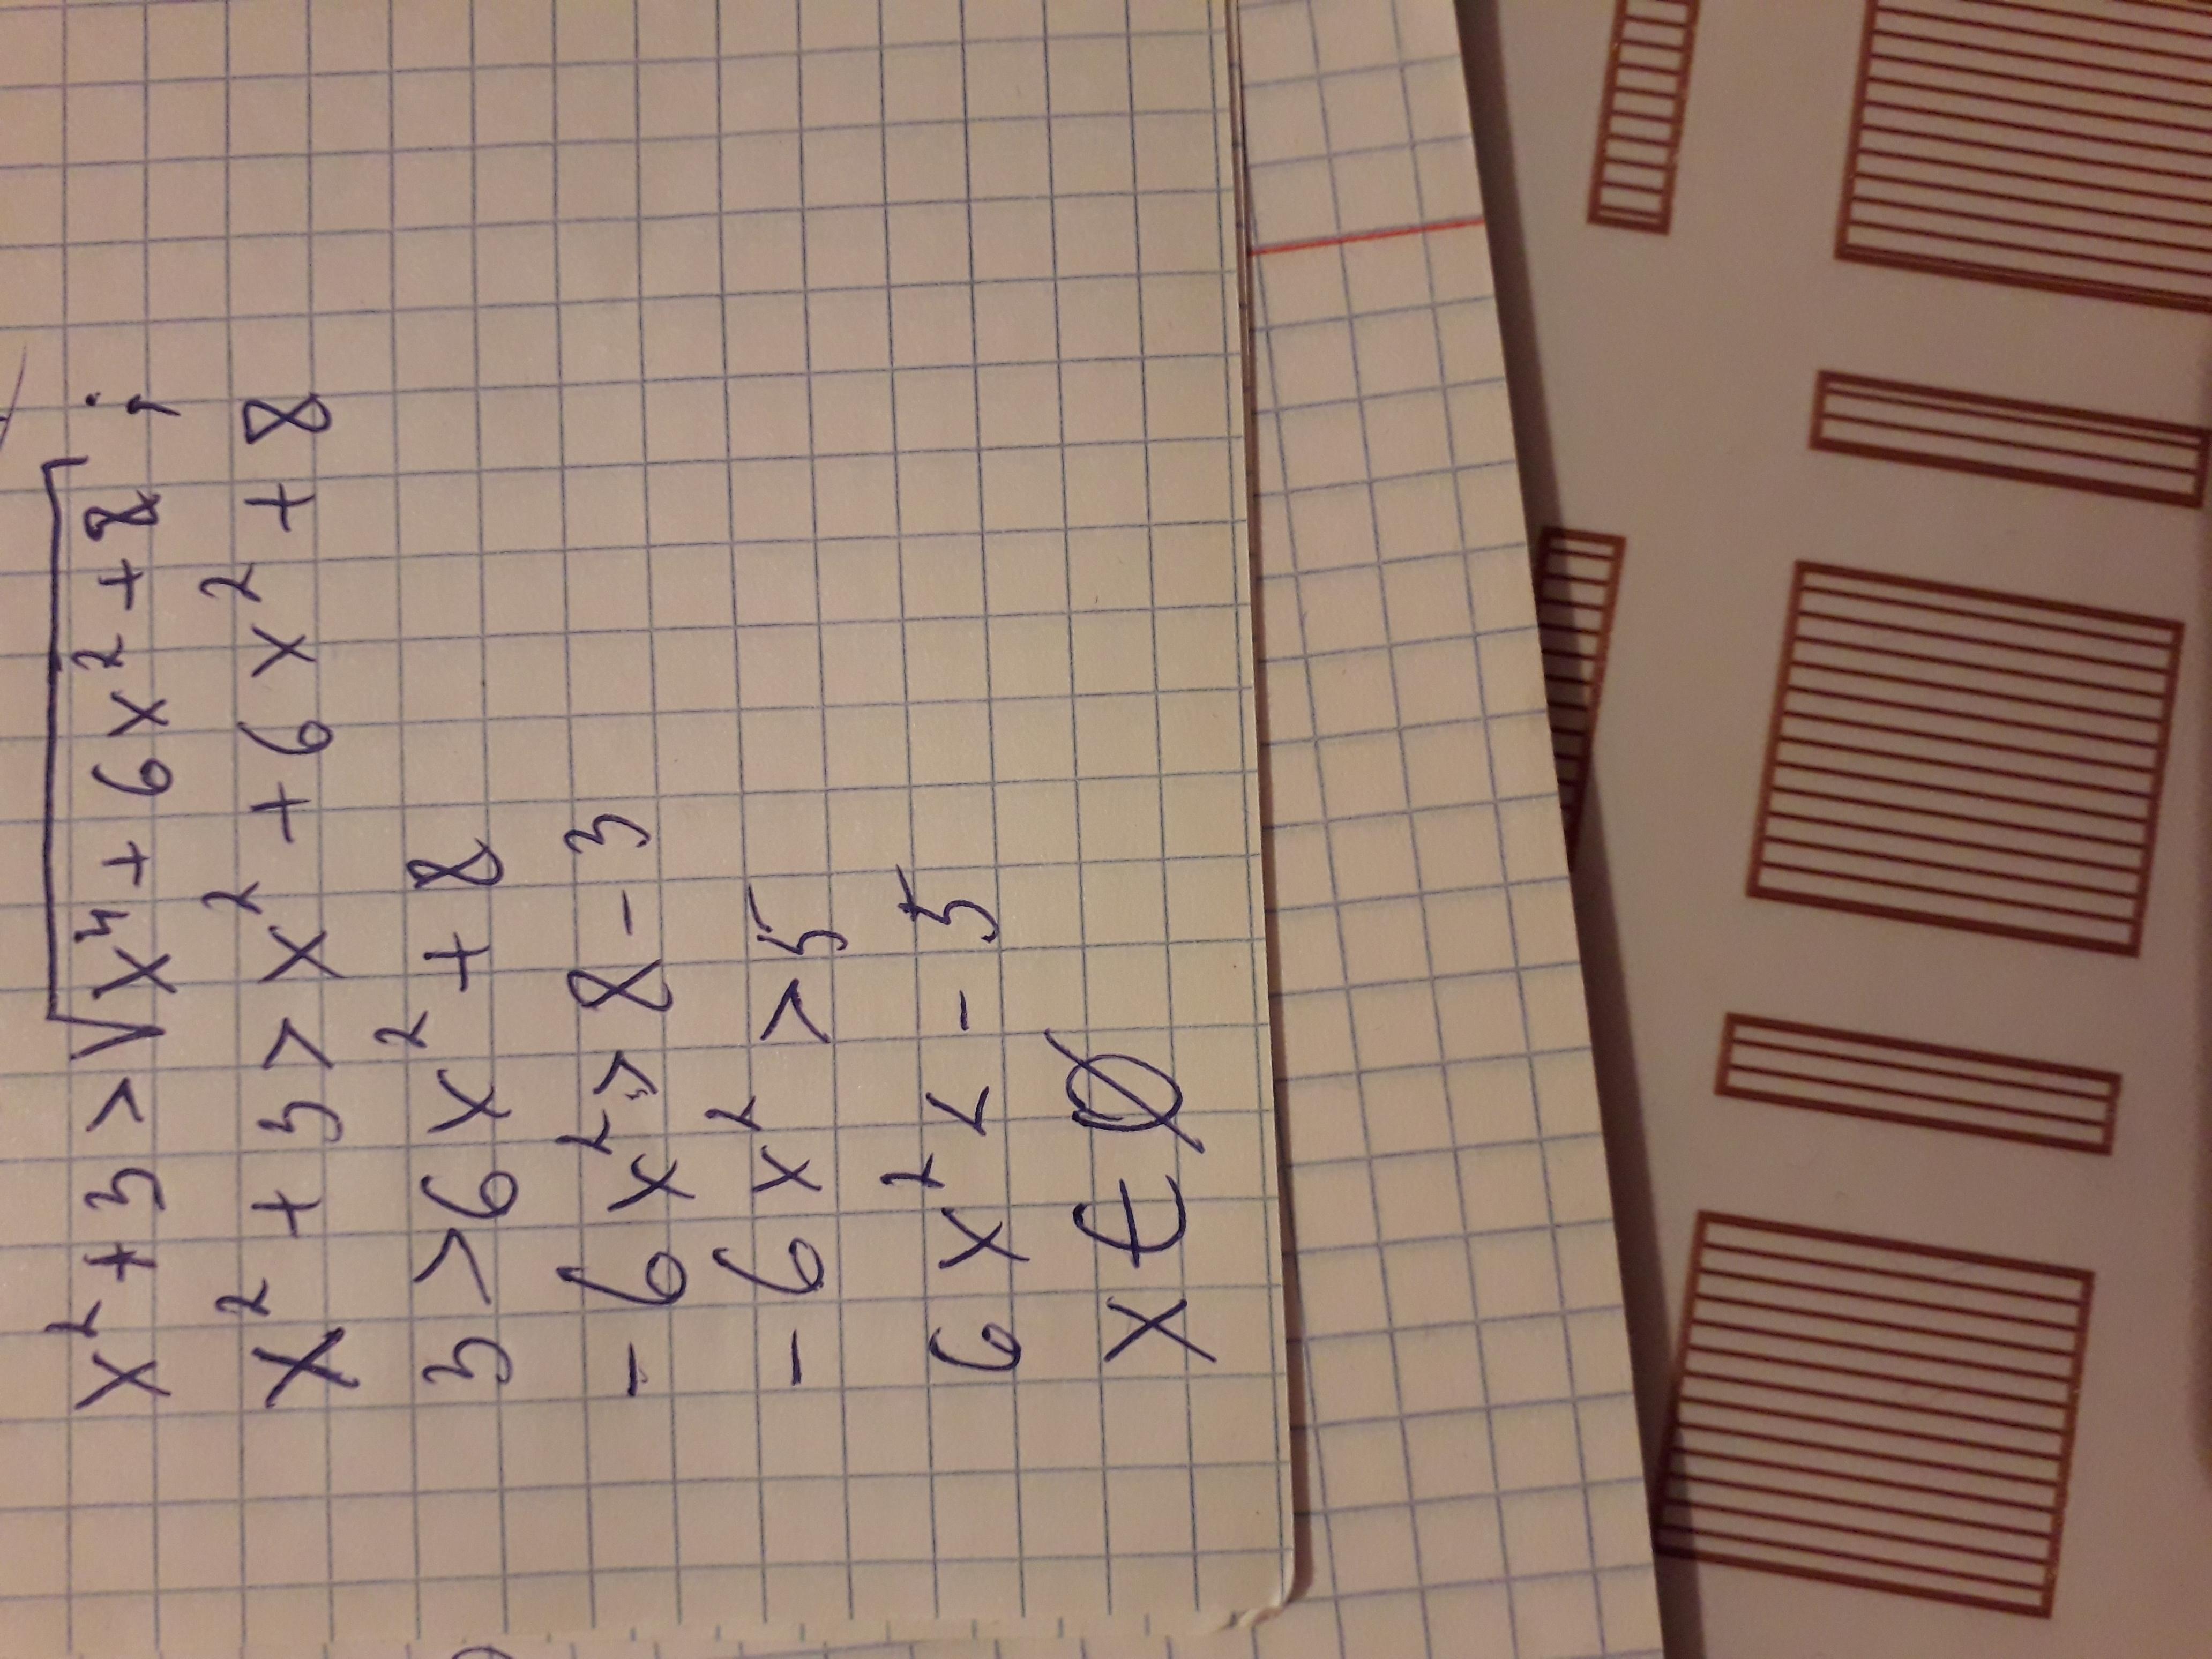 x² + 3 > √x⁴ + 6x² + 8 ;
x² + 3 > x² + 6x² + 8
3 > 6x² + 8
- 6x² > 8 - 3
- 6x² > 5
6x² < - 5
x ∈ ∅